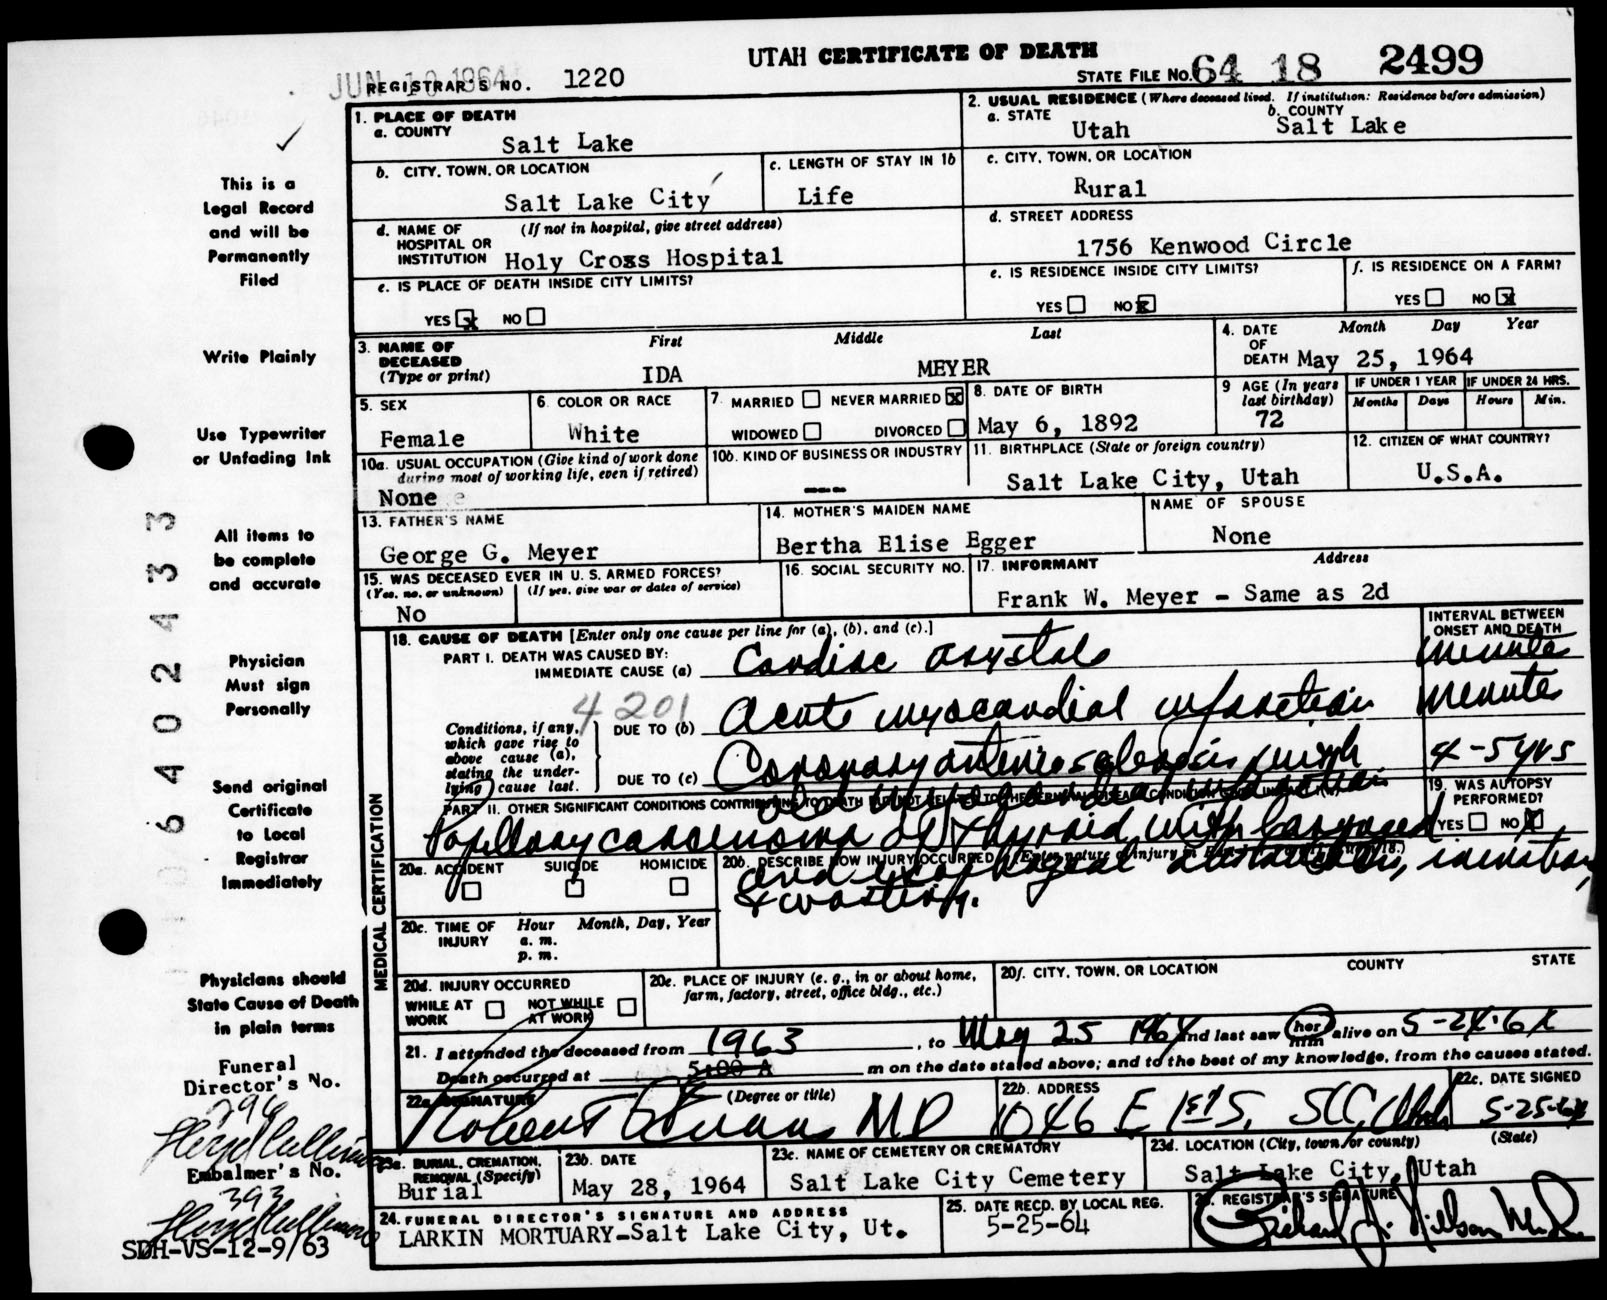 UTAH CERTIFICATE OF DEATH
JUN 10 1964
REGISTRAR'S NO. 1220
STATE FILE NO. 64 18 2499
1. PLACE OF DEATH
a. COUNTY
Salt Lake
2. USUAL RESIDENCE (Where deceased lived. If institution: Residence before admission)
a. STATE
Utah
b. COUNTY
Salt Lake
b. CITY, TOWN, OR LOCATION
Salt Lake City
c. LENGTH OF STAY IN 1b
Life
c. CITY, TOWN, OR LOCATION
Rural
d. NAME OF HOSPITAL OR INSTITUTION (If not in hospital, give street address)
Holy Cross Hospital
d. STREET ADDRESS
1756 Kenwood Circle
e. IS PLACE OF DEATH INSIDE CITY LIMITS?
YES x NO
e. IS RESIDENCE INSIDE CITY LIMITS?
YES NO x
f. IS RESIDENCE ON A FARM?
YES NO x
3. NAME OF DECEASED (Type or print)
First Middle Last
IDA MEYER
4. DATE OF DEATH
Month Day Year
May 25, 1964
5. SEX
Female
6. COLOR OR RACE
White
7. MARRIED NEVER MARRIED x
WIDOWED DIVORCED
8. DATE OF BIRTH
May 6, 1892
9 AGE (In years last birthday)
72
IF UNDER 1 YEAR
Months Days
IF UNDER 24 HRS.
Hours Min.
10a. USUAL OCCUPATION (Give kind of work done during most of working life, even if retired)
None
10b. KIND OF BUSINESS OR INDUSTRY
---
11. BIRTHPLACE (State or foreign country)
Salt Lake City, Utah
12. CITIZEN OF WHAT COUNTRY?
U.S.A.
13. FATHER'S NAME
George G. Meyer
14. MOTHER'S MAIDEN NAME
Bertha Elise Egger
NAME OF SPOUSE
None
15. WAS DECEASED EVER IN U. S. ARMED FORCES?
(Yes, no, or unknown) (If yes, give war or dates of service)
No
16. SOCIAL SECURITY NO.
17. INFORMANT Address
Frank W. Meyer - Same as 2d
MEDICAL CERTIFICATION
18. CAUSE OF DEATH [Enter only one cause per line for (a), (b), and (c).]
INTERVAL BETWEEN ONSET AND DEATH
PART I. DEATH WAS CAUSED BY:
IMMEDIATE CAUSE (a) Cardiac asystole minutes
4201
Conditions, if any, which gave rise to above cause (a), stating the underlying cause last.
DUE TO (b) Acute myocardial infarction minutes
DUE TO (c) Coronary arteriosclerosis, with 4-5 yrs
old myocardial infarction
PART II. OTHER SIGNIFICANT CONDITIONS CONTRIBUTING TO DEATH BUT NOT RELATED TO THE TERMINAL DISEASE CONDITION
Papillary carcinoma of thyroid, with laryngeal
and esophageal obstruction, inanition,
& wasting.
19. WAS AUTOPSY PERFORMED?
YES NO X
20a. ACCIDENT SUICIDE HOMICIDE
20b. DESCRIBE HOW INJURY OCCURRED. (Enter nature of injury in
20c. TIME OF INJURY Hour Month, Day, Year
a. m.
p. m.
20d. INJURY OCCURRED
WHILE AT WORK NOT WHILE AT WORK
20e. PLACE OF INJURY (e. g., in or about home, farm, factory, street, office bldg., etc.)
20f. CITY, TOWN, OR LOCATION COUNTY STATE
21. I attended the deceased from 1963, to May 25 1964 and last saw her him alive on 5-24-64
Death occurred at 5:00 A m on the date stated above; and to the best of my knowledge, from the causes stated.
22a. SIGNATURE (Degree or title)
Robert Evans MD
22b. ADDRESS
1046 E 1st S. SLC, Utah
22c. DATE SIGNED
5-25-64
23a. BURIAL, CREMATION, REMOVAL (Specify)
Burial
23b. DATE
May 28, 1964
23c. NAME OF CEMETERY OR CREMATORY
Salt Lake City Cemetery
23d. LOCATION (City, town, or county) (State)
Salt Lake City, Utah
24. FUNERAL DIRECTOR'S SIGNATURE AND ADDRESS
LARKIN MORTUARY-Salt Lake City, Ut.
25. DATE RECD. BY LOCAL REG.
5-25-64
REGISTRAR'S SIGNATURE
Richard J. Nielson
This is a
Legal Record
and will be
Permanently
Filed
Write Plainly
Use Typewriter
or Unfading Ink
All items to
be complete
and accurate
Physician
Must sign
Personally
Send original
Certificate
to Local
Registrar
Immediately
Physicians should
State Cause of Death
in plain terms
Funeral
Director's No.
294
Embalmer's No.
393
SDH-VS-12-9/63
06402433